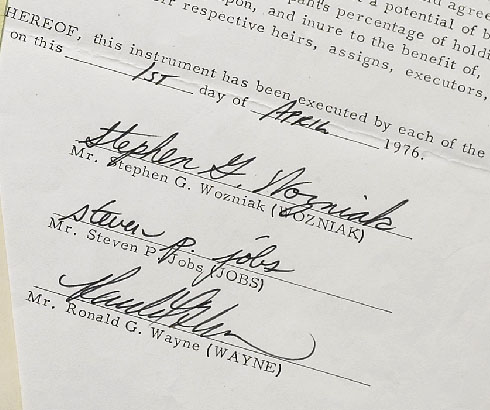 a potential of b
and agree
pant's percentage of holdi
upon, and inure to the benefit of,
respective heirs, assigns, executors,
HEREOF, this instrument has been executed by each of the
on this 1ST day of APRIL 1976.
Stephen G. Wozniak
Mr. Stephen G. Wozniak (WOZNIAK)
steven p. jobs
Mr. Steven P. Jobs (JOBS)
Mr. Ronald G. Wayne (WAYNE)